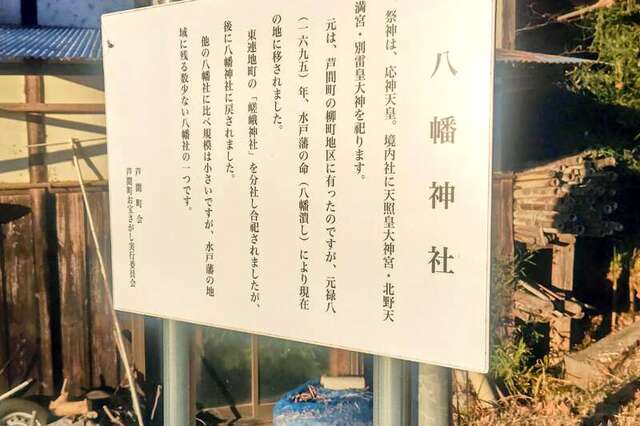 八幡神社
祭神は、応神天皇。境内社に天照皇大神宮・北野天
満宮・別雷皇大神を祀ります。
元は、芦間町の柳町地区に有ったのですが、元禄八
(一六九五)年、水戸藩の命(八幡潰し)により現在
の地に移されました。
東連地町の「嵯峨神社」を分社し合祀されましたが、
後に八幡神社に戻されました。
他の八幡社に比べ規模は小さいですが、水戸藩の地
域に残る数少ない八幡社の一つです。
芦間町会
芦間町お宝さがし実行委員会